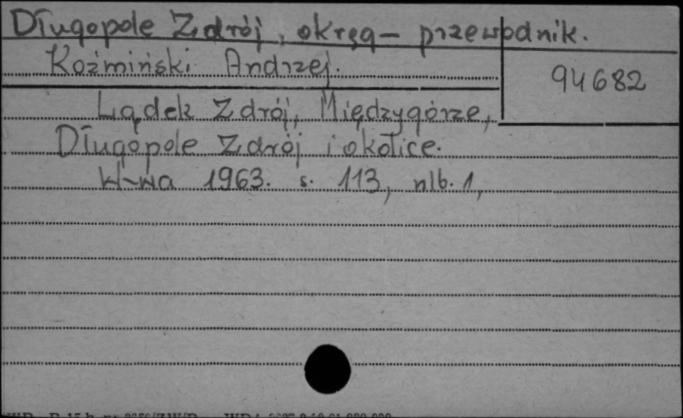 Długopole Zdrój, okręg - przewodnik.
Koźmiński Andrzej.
94682
Lądek Zdrój, Międzygórze,
Długopole Zdrój i okolice.
W-wa 1963. s. 113, nlb. 1,